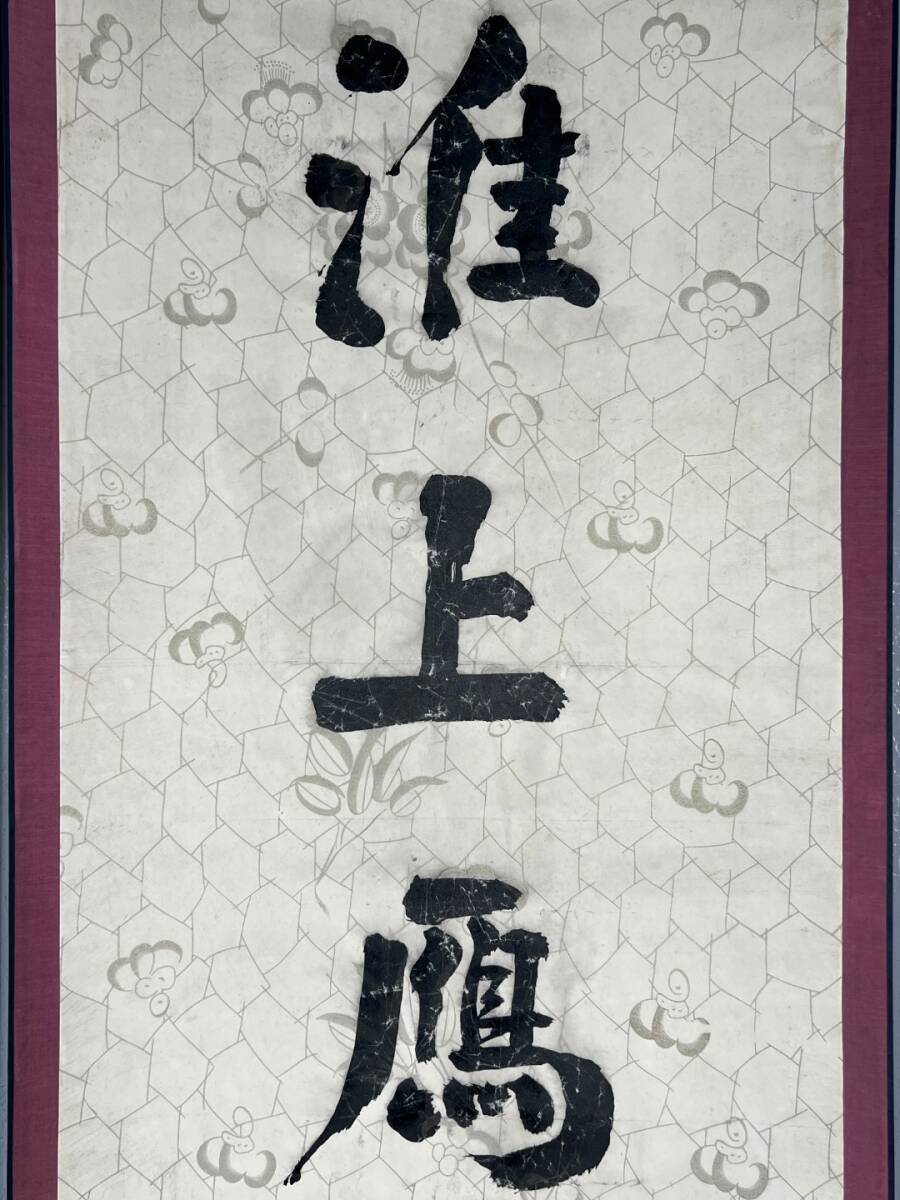 淮
上
鴈